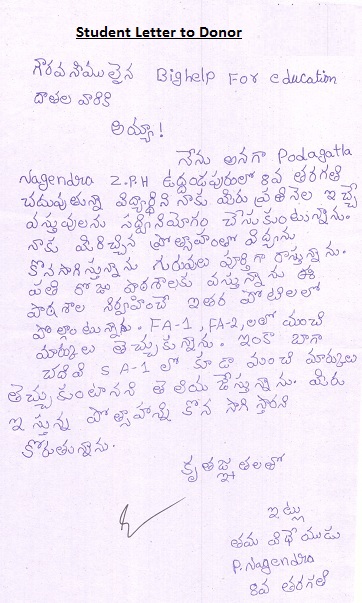 Student Letter to Donor
గౌరవనీయులైన Bighelp For education
దాతల వారికి
అయ్యా!
నేను అనగా Podagatla
Nagendra Z.P.H ఉద్దండపురంలో 8వ తరగతి
చదువుతున్న విద్యార్థిని నాకు మీరు ప్రతినెల ఇచ్చే
వస్తువులను సద్వినియోగం చేసుకుంటున్నాను.
నాకు మీరిచ్చిన ప్రోత్సాహంలో విద్యను
కొనసాగిస్తున్నాను పూర్తిగా రాస్తున్నాను.
రోజు పాఠశాలకు వస్తున్నాను ఈ
పాఠశాల నిర్వహించే ఇతర పోటీలలో
పాల్గొంటున్నాను. FA-1 FA-2,లలో మంచి
మార్కులు తెచ్చుకున్నాను. ఇంకా బాగా
చదివి S A-1 లో కూడా మంచి మార్కులు
తెచ్చుకుంటానని తెలియజేస్తున్నాను. మీరు
ఇస్తున్న ప్రోత్సాహాన్ని కొనసాగిస్తారని
కోరుతున్నాను.
కృతజ్ఞతలతో
ఇట్లు
తమ విధేయుడు
P.Nagendra
8వ తరగతి